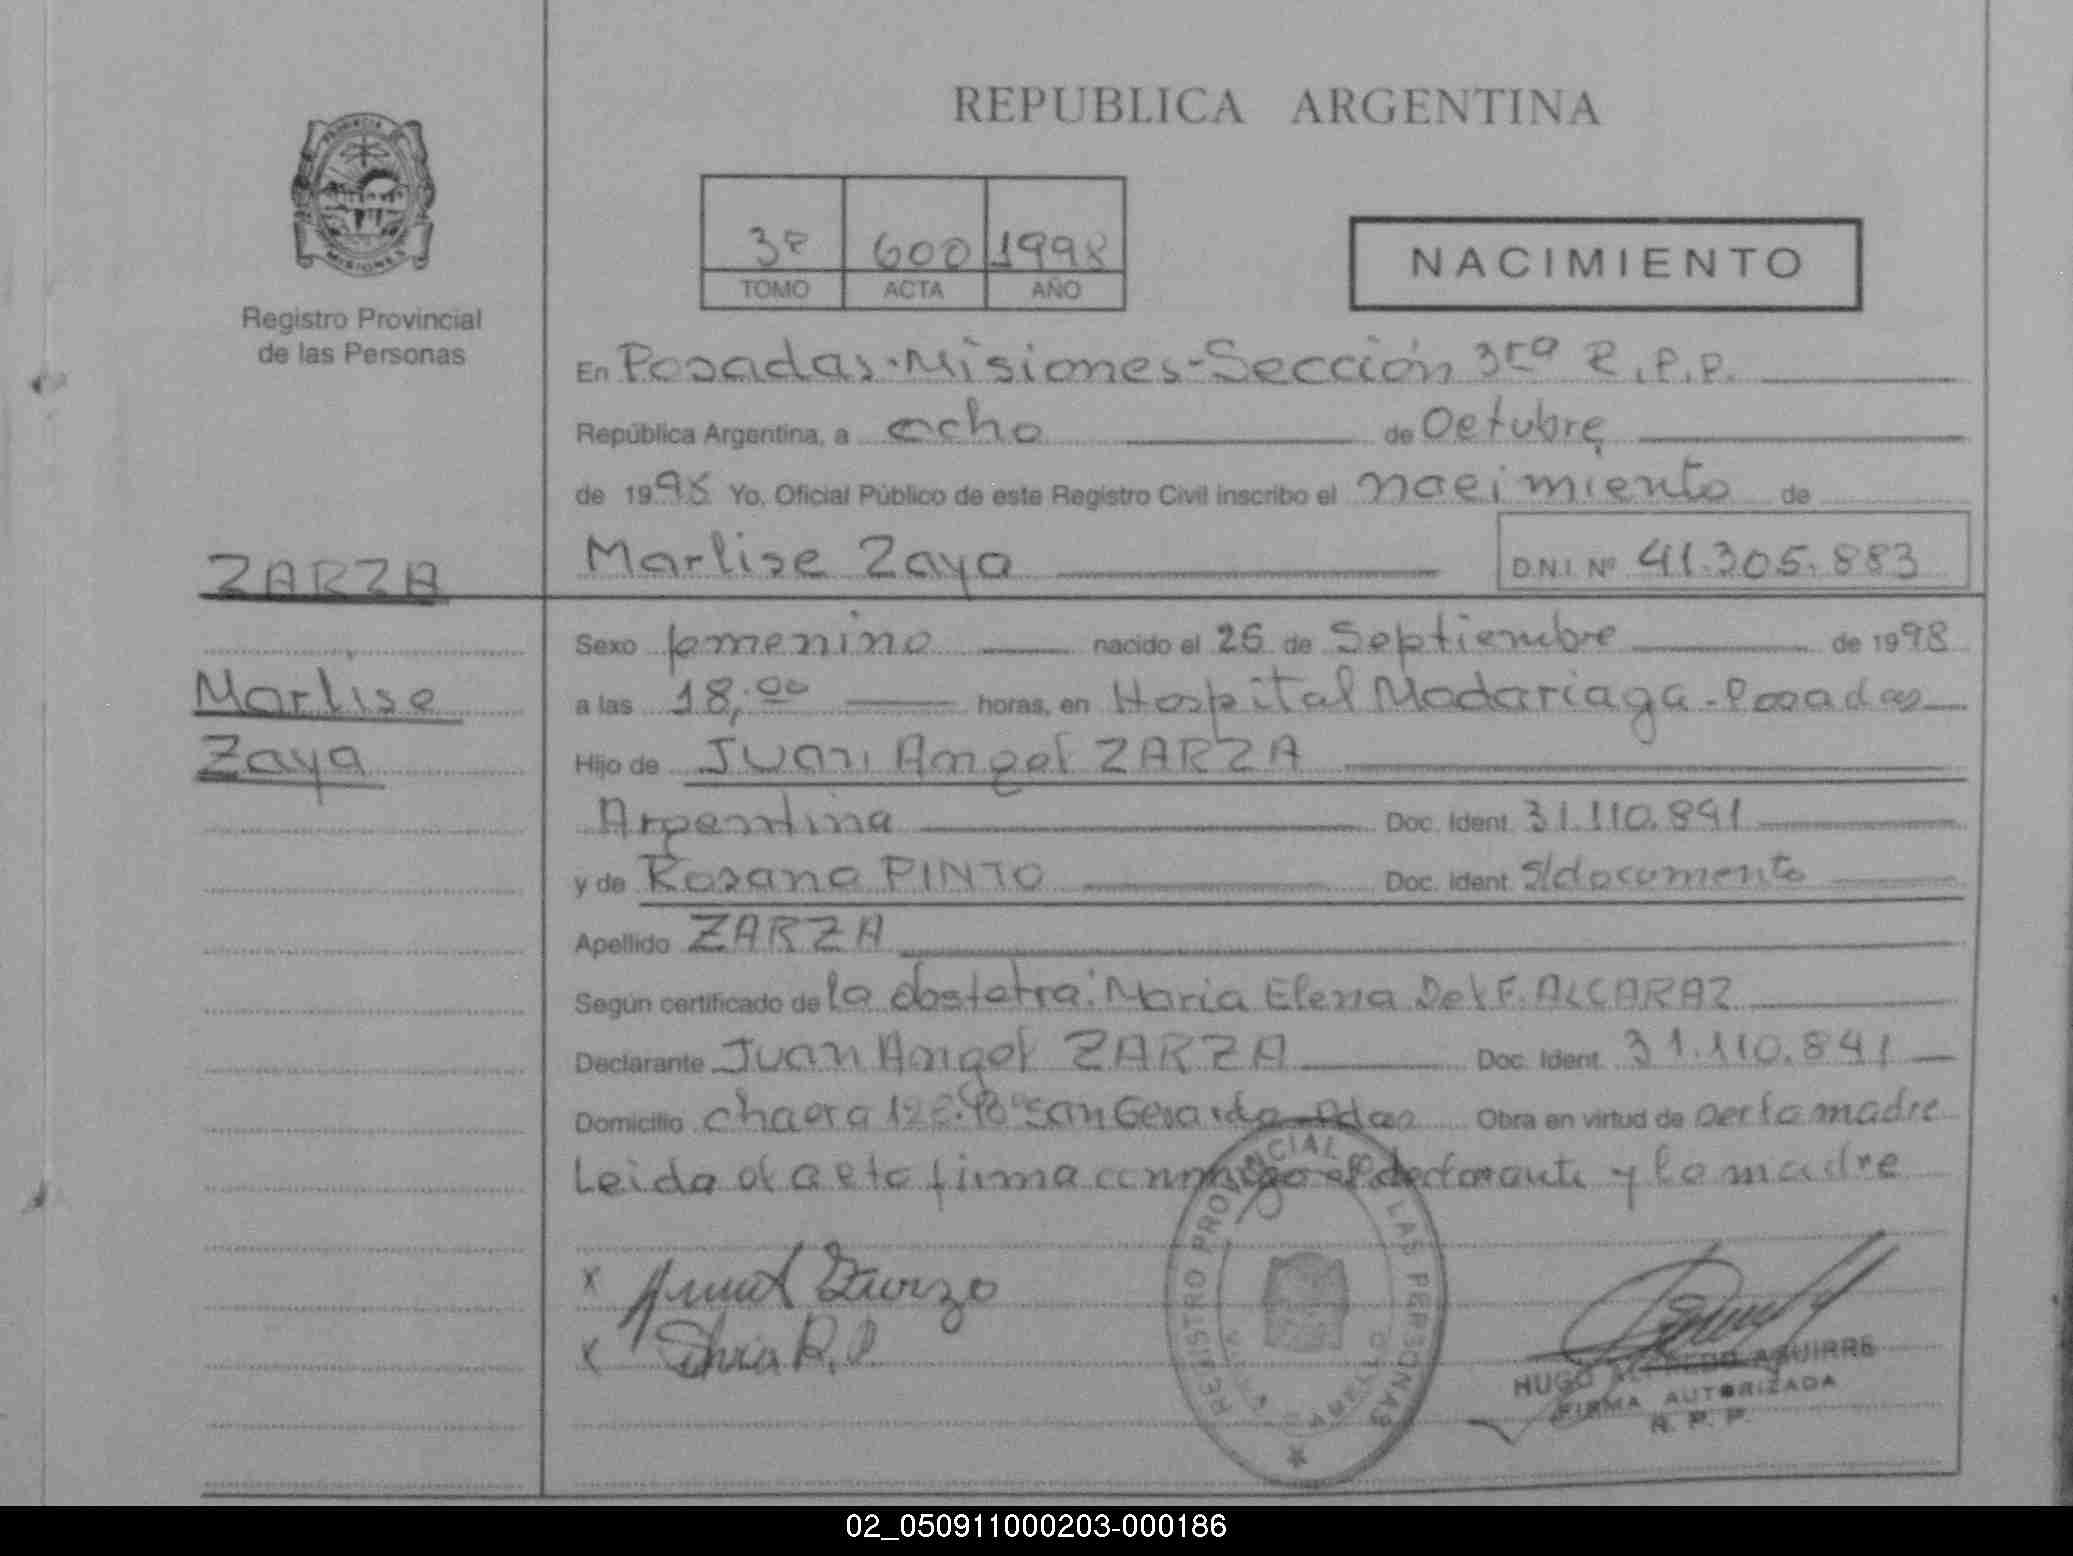 REPUBLICA ARGENTINA
PROVINCIA
MISIONES
Registro Provincial
de las Personas
600 1998
TOMO ACTA AÑO
NACIMIENTO
En Posadas-Misiones-Sección 3ra R.P.P.
República Argentina, a ocho de Octubre
de 1998 Yo, Oficial Público de este Registro Civil inscribo el nacimiento de
Marlise Zaya D.N.I. Nº 41.305.883
ZARZA
Marlise
Zaya
Sexo femenino nacido el 26 de Septiembre de 1998
a las 18,00 horas, en Hospital Madariaga-Posadas
Hijo de Juan Angel ZARZA
Argentina Doc. Ident. 31.110.841
y de Rosana PINTO Doc. Ident. S/documento
Apellido ZARZA
Según certificado de la obstetra: Maria Elena Del F. ALCARAZ
Declarante Juan Angel ZARZA Doc. Ident. 31.110.841
Domicilio chacra Bº San Gerardo-Pdas Obra en virtud de
madre
Leida el acta firma conmigo el declarante y la madre
REGISTRO PROVINCIAL DE LAS PERSONAS
X Zarza
X Silvia R.
HUGO ALFREDO AGUIRRE
FIRMA AUTORIZADA
R. P. P.
02_050911000203-000186